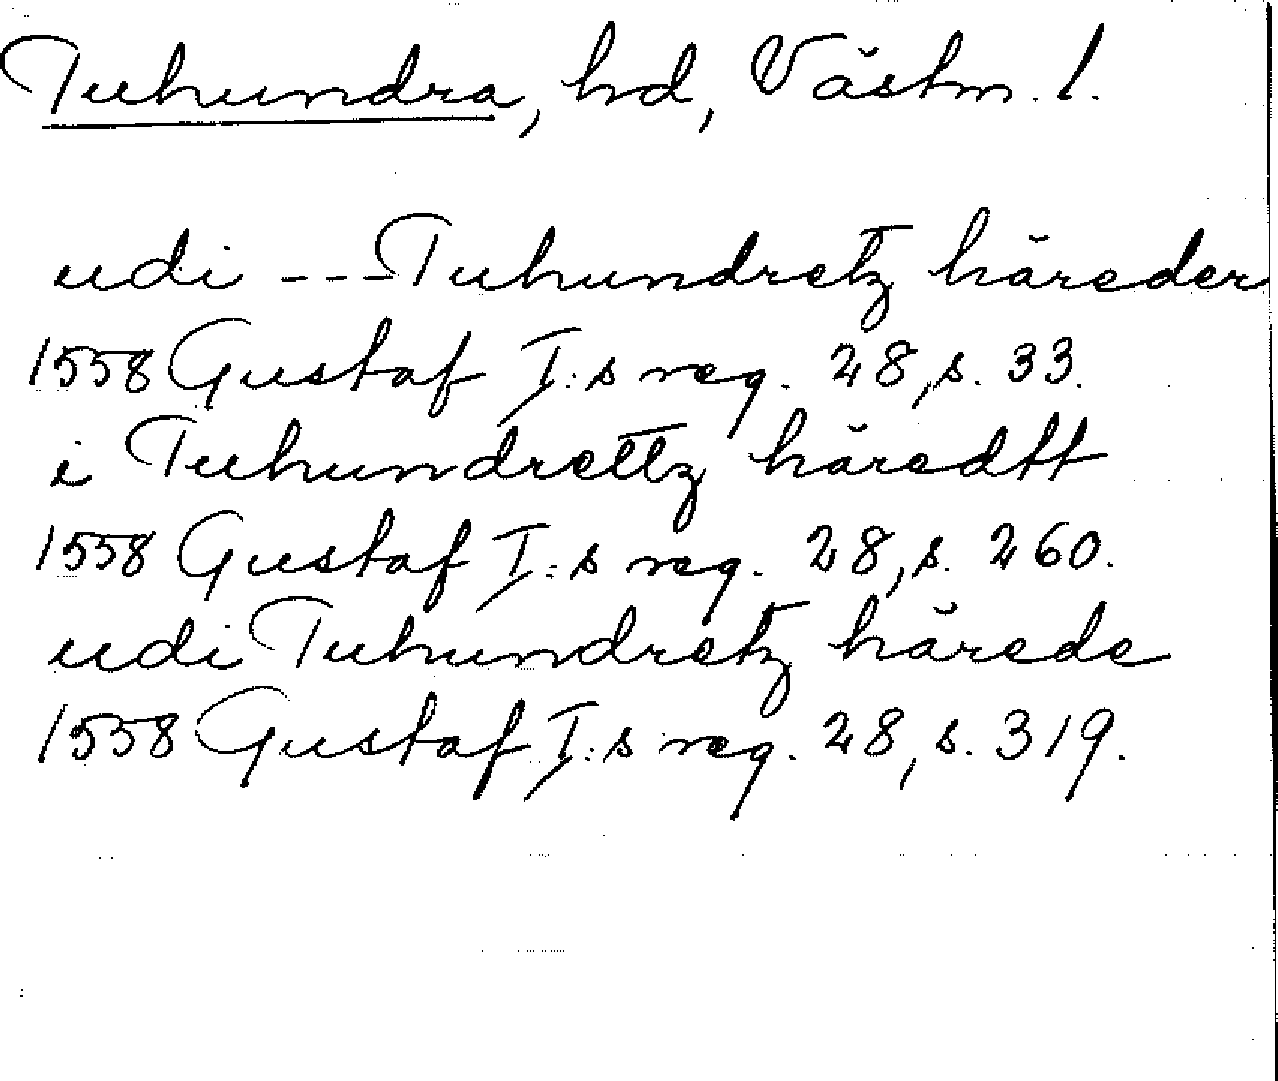 Tuhundra, hd, Västm. l.
udi --- Tuhundretz häreder
1558 Gustaf I:s reg. 28, s. 33.
i Tuhundrettz häredtt
1558 Gustaf I:s reg. 28, s. 260.
udi Tuhundretz härede
1558 Gustaf I:s reg. 28, s. 319.